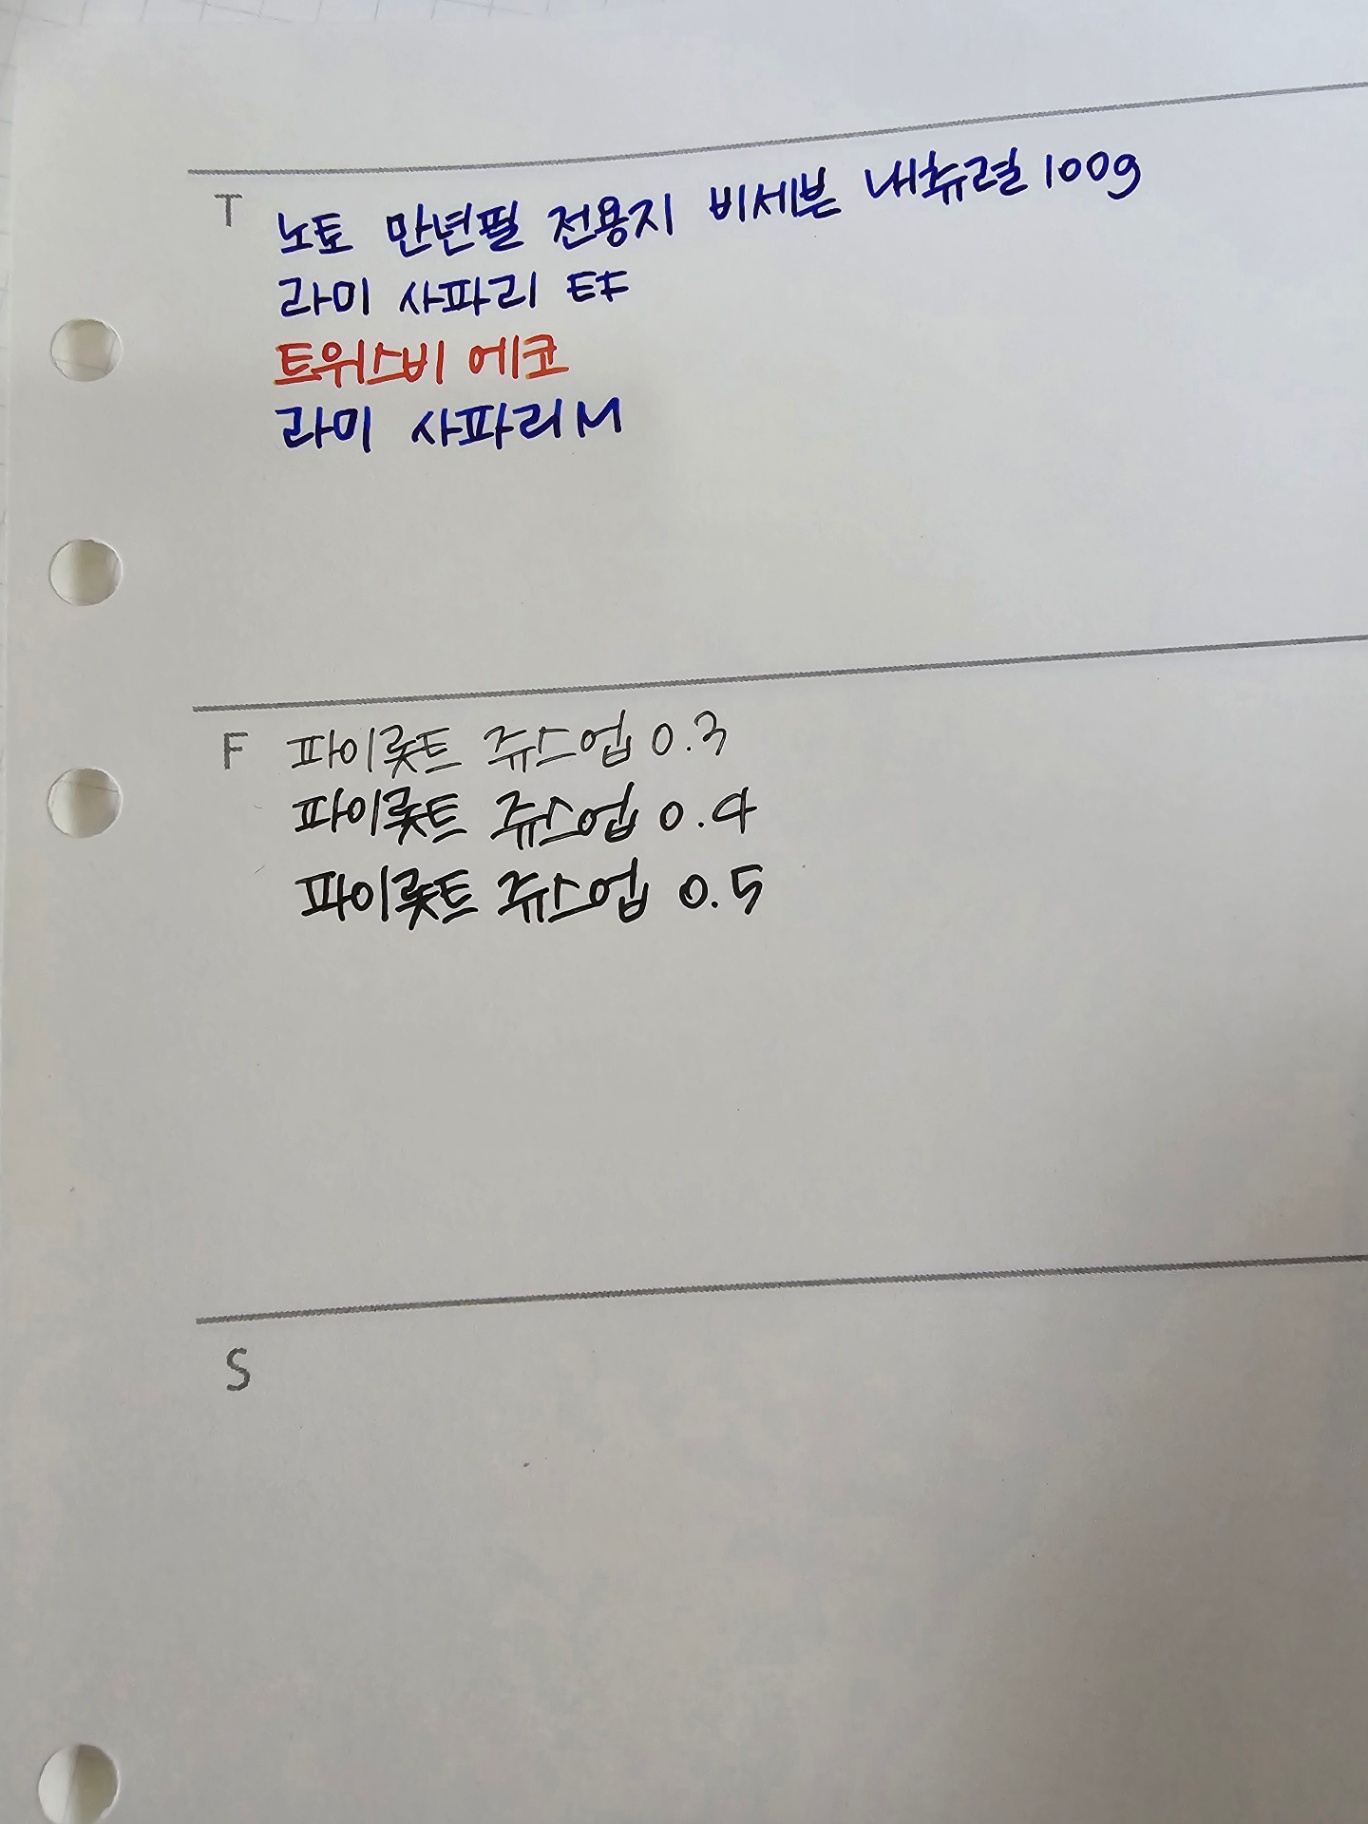 T 노토 만년필 전용지 비세븐 내츄럴 100g
라미 사파리 EF
트위스비 에코
라미 사파리 M
F 파이롯트 쥬스업 0.3
파이롯트 쥬스업 0.4
파이롯트 쥬스업 0.5
S